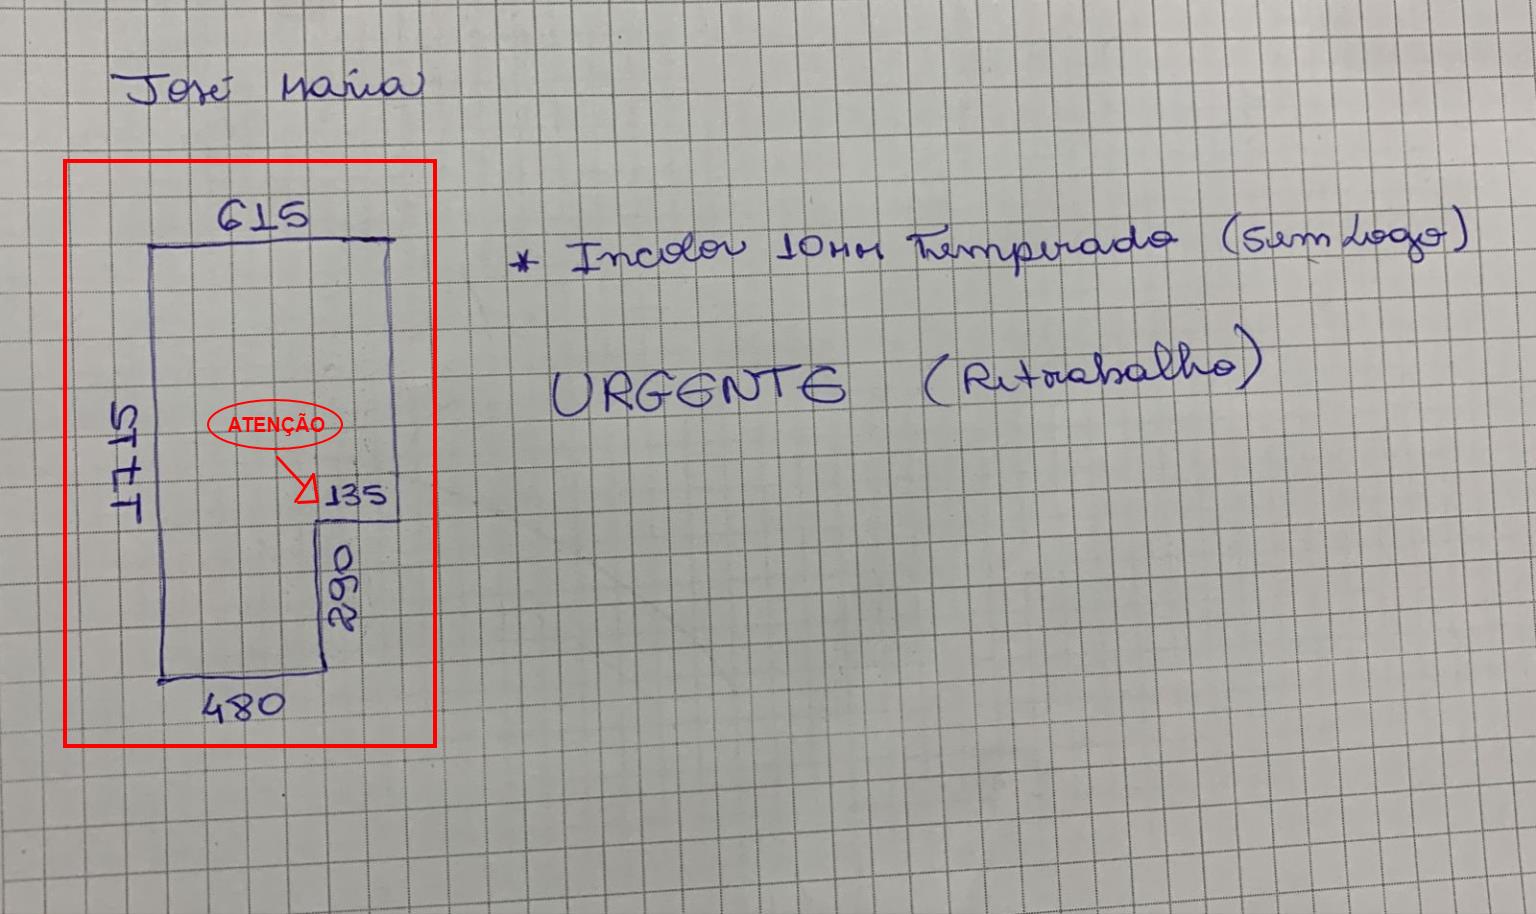 José Maria
615
* Incolor 10MM Temperado (Sem Logo)
URGENTE (Retrabalho)
1715
ATENÇÃO
135
290
480